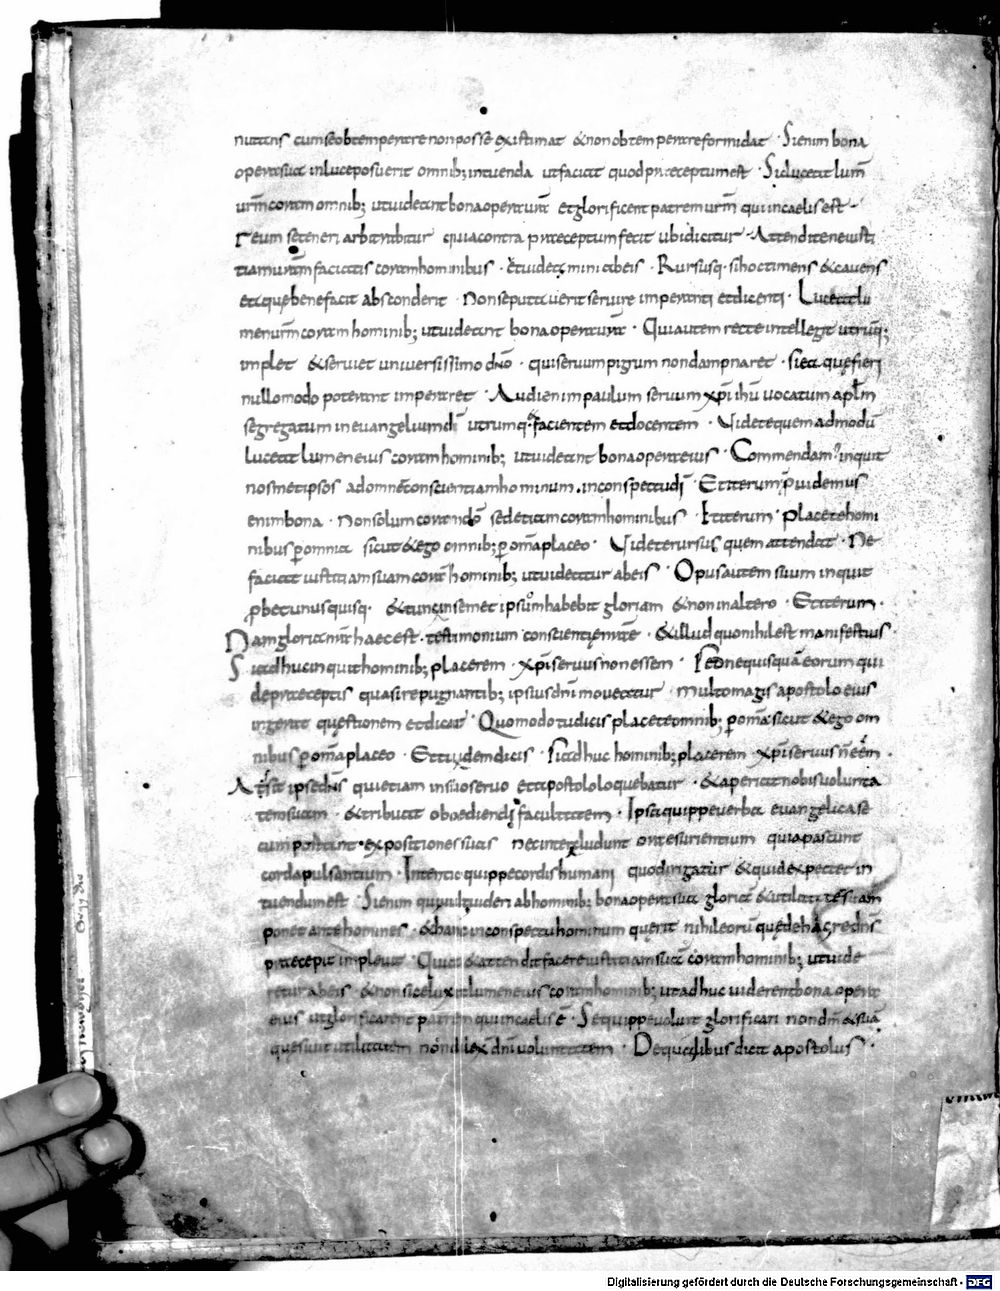 nuttens cum se obtemperare non posse existimat & non obtemperare formidat · Si enim bona
opera sua in luce posuerit omnib; intuenda ut faciat quod praeceptum est · Sic luceat lum̄
ur̄m coram omnib; ut uideant bona opera ur̄a et glorificent patrem ur̄m qui in caelis est ·
reum se teneri arbitrabitur quia contra praeceptum fecit ubi dicitur · Attendite ne iusti
tiam ur̄am faciatis coram hominibus · et uidea mini ab eis · Rursusq· si hoc timens & cauens
ea quę bene facit absconderit · Non se putauerit seruire imperanti et dicenti · Luceat lu
men ur̄m coram hominib; ut uideant bona opera ur̄a · Qui autem recte intellegit utrūq;
implet & seruiet uniuersissimo dn̄o · qui seruum pigrum non dampnaret · si ea quę fieri
nullo modo poterant imperaret · Audi enim paulum seruum xp̄i ih̄u uocatum apl̄m
segregatum in euangelium dī utrumq· facientem et docentem · Videte quemadmodū
luceat lumen eius coram hominib; ut uideant bona opera eius · Commendam; inquit
nosmetipsos ad omnē conscientiam hominum · in conspectu dī · Et iterum p̄uidemus
enim bona · Non solum coram dō sed etiam coram hominibus · Et iterum · Placete homi
nibus p omnia sicut & ego omnib; p om̄a placeo · Videte rursus quem attendat · Ne
faciat iustitiam suam corā hominib; ut uideatur ab eis · Opus autem suum inquit
probet unusquisq· & tunc in semet ipsum habebit gloriam & non in altero · Et iterum ·
Nam gloria nr̄a haec est · testimonium conscientię nr̄ae · & illud quo nihil est manifestius ·
Si adhuc inquit hominib; placerem · xp̄i seruus non essem · Sed ne quisquā eorum qui
de praeceptis quasi repugnantib; ipsius dn̄i mouentur multo magis apostolo eius
ingerat quęstionem et dicat · Quomodo tu dicis placete omnib; p om̄a sicut & ego om
nibus p om̄a placeo · Et tu idem dicis · Si adhuc hominib; placerem · xp̄i seruus n̄ eēm ·
Assit ipse dn̄s qui etiam in suo seruo et apostolo loquebatur · & aperiat nobis uolunta
tem suam · & tribuat oboediendi facultatem · Ipsa quippe uerba euangelica se
cum portant expositiones suas nec intercludunt ora esurientium quia pascunt
corda pulsantium · Intentio quippe cordis humani quo dirigatur & quid expectet in
tuendum est · Si enim qui uult uideri ab hominib; bona opera sua gloriā & utilitatē suam
ponet ante homines · & hanc in conspectu hominum querit nihil eorū quę de hac re dn̄s
praecepit impleuit · Quia & attendit facere iustitiam suā coram hominib; ut uide
retur ab eis · & non sic eluxit lumen eius coram hominib; ut adhuc uiderent bona opera
eius ut glorificarent patrem qui in caelis ē · Se quippe uoluit glorificari non dm̄ & suā
quesiuit utilitatem non dilexit dn̄i uoluntatem · De qualibus dicit apostolus ·
Digitalisierung gefördert durch die Deutsche Forschungsgemeinschaft - DFG